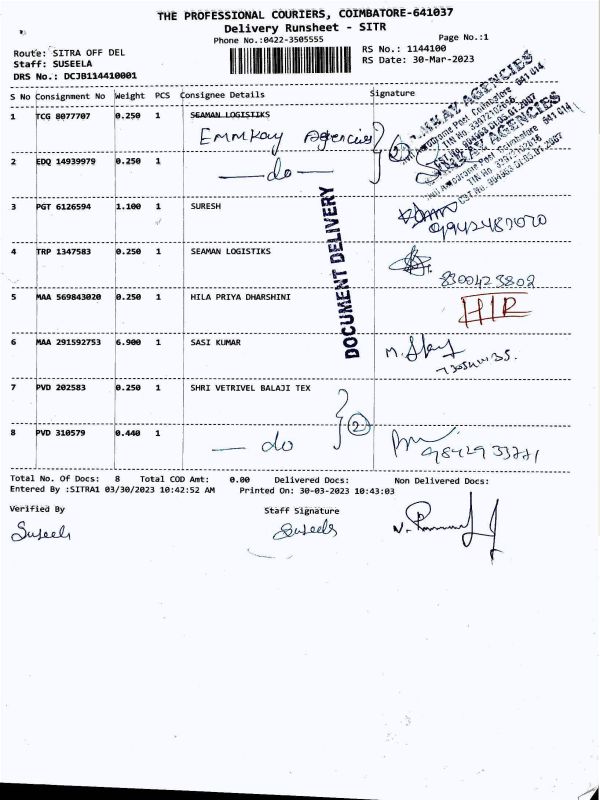 THE PROFESSIONAL COURIERS, COIMBATORE-641037
Delivery Runsheet - SITR
Phone No.:0422-3505555
Page No.:1
Route: SITRA OFF DEL
RS No.: 1144100
Staff: SUSEELA
RS Date: 30-Mar-2023
DRS No.: DCJB114410001
S No Consignment No Weight PCS Consignee Details Signature
1 TCG 8077707 0.250 1 SEAMAN LOGISTIKS
Emmkay Agencies
2
2 EDQ 14939979 0.250 1
— do —
3 PGT 6126594 1.100 1 SURESH
4 TRP 1347583 0.250 1 SEAMAN LOGISTIKS
8300423802
DOCUMENT DELIVERY
5 MAA 569843020 0.250 1 HILA PRIYA DHARSHINI
H/R
6 MAA 291592753 6.900 1 SASI KUMAR
7 PVD 202583 0.250 1 SHRI VETRIVEL BALAJI TEX
2
8 PVD 310579 0.440 1
— do
Total No. Of Docs: 8 Total COD Amt: 0.00 Delivered Docs: Non Delivered Docs:
Entered By :SITRA1 03/30/2023 10:42:52 AM Printed On: 30-03-2023 10:43:03
Verified By Staff Signature
Suseela Suseela